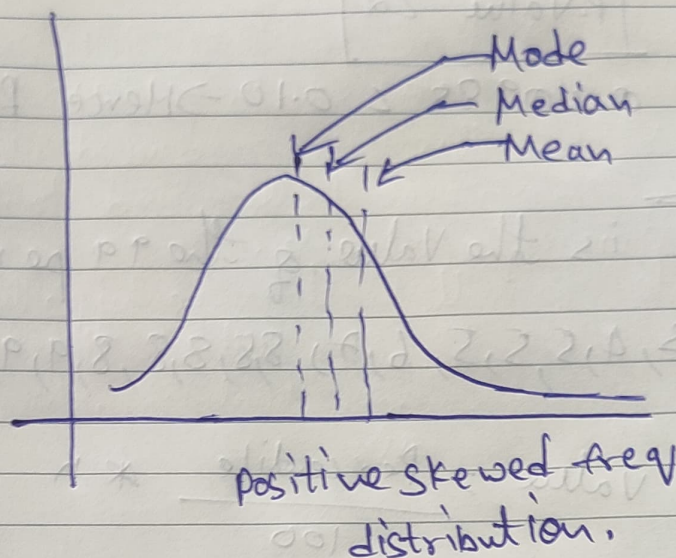 Mode
Median
Mean
positive skewed freq
distribution.